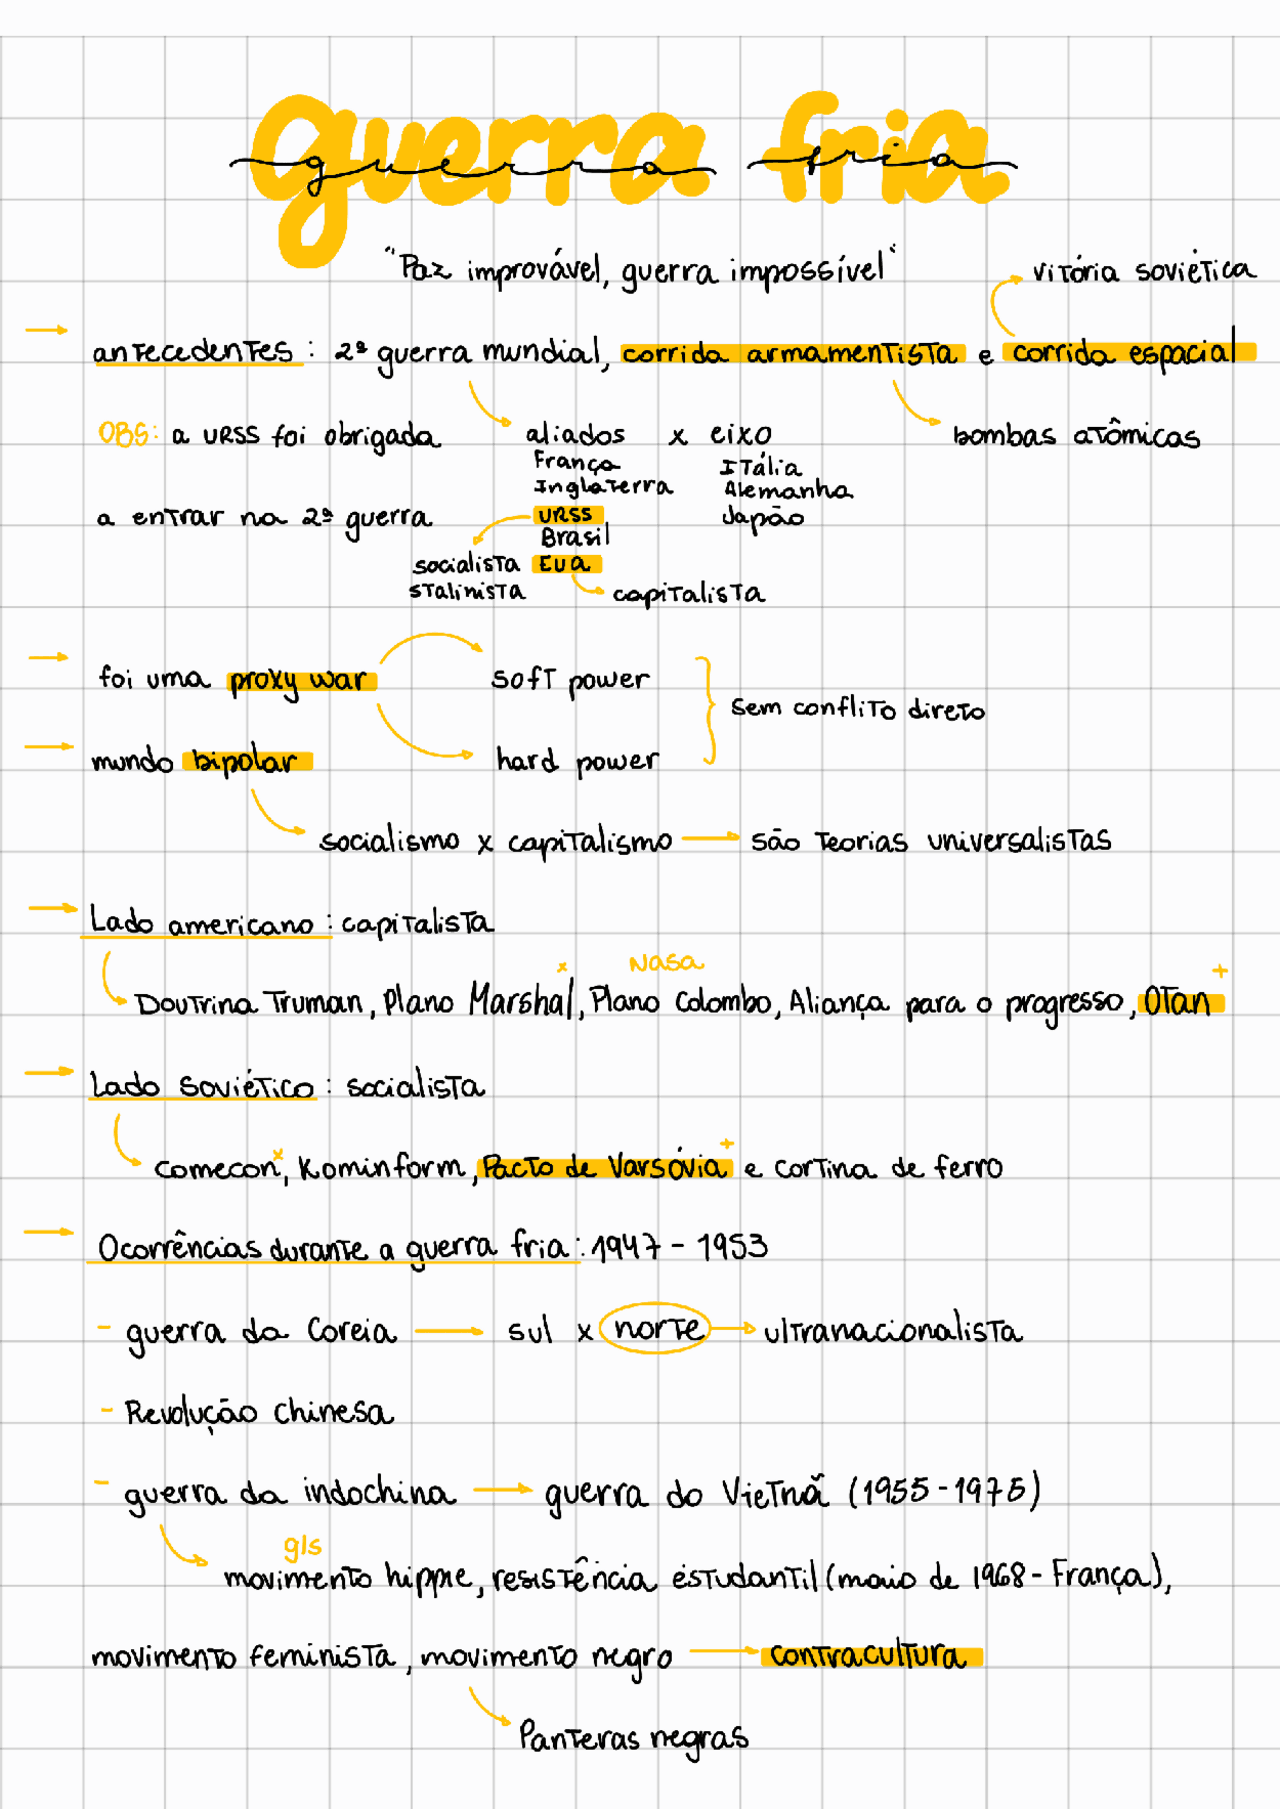 guerra fria
"Paz improvável, guerra impossível"
vitória soviética
antecedentes: 2ª guerra mundial, corrida armamentista e corrida espacial
OBS: a URSS foi obrigada
a entrar na 2ª guerra
aliados x eixo
bombas atômicas
França
Itália
Inglaterra
Alemanha
URSS
Japão
Brasil
socialista
EUA
stalinista
capitalista
foi uma proxy war
soft power
sem conflito direto
mundo bipolar
hard power
socialismo x capitalismo → são teorias universalistas
Lado americano: capitalista
x Nasa +
Doutrina Truman, Plano Marshal, Plano Colombo, Aliança para o progresso, OTan
Lado Soviético: socialista
x +
comecon, Kominform, Pacto de Varsóvia e cortina de ferro
Ocorrências durante a guerra fria: 1947 - 1953
- guerra da Coreia → sul x norte → ultranacionalista
- Revolução chinesa
- guerra da indochina → guerra do Vietnã (1955-1975)
gls
movimento hippie, resistência estudantil (maio de 1968 - França),
movimento feminista, movimento negro → contracultura
Panteras negras